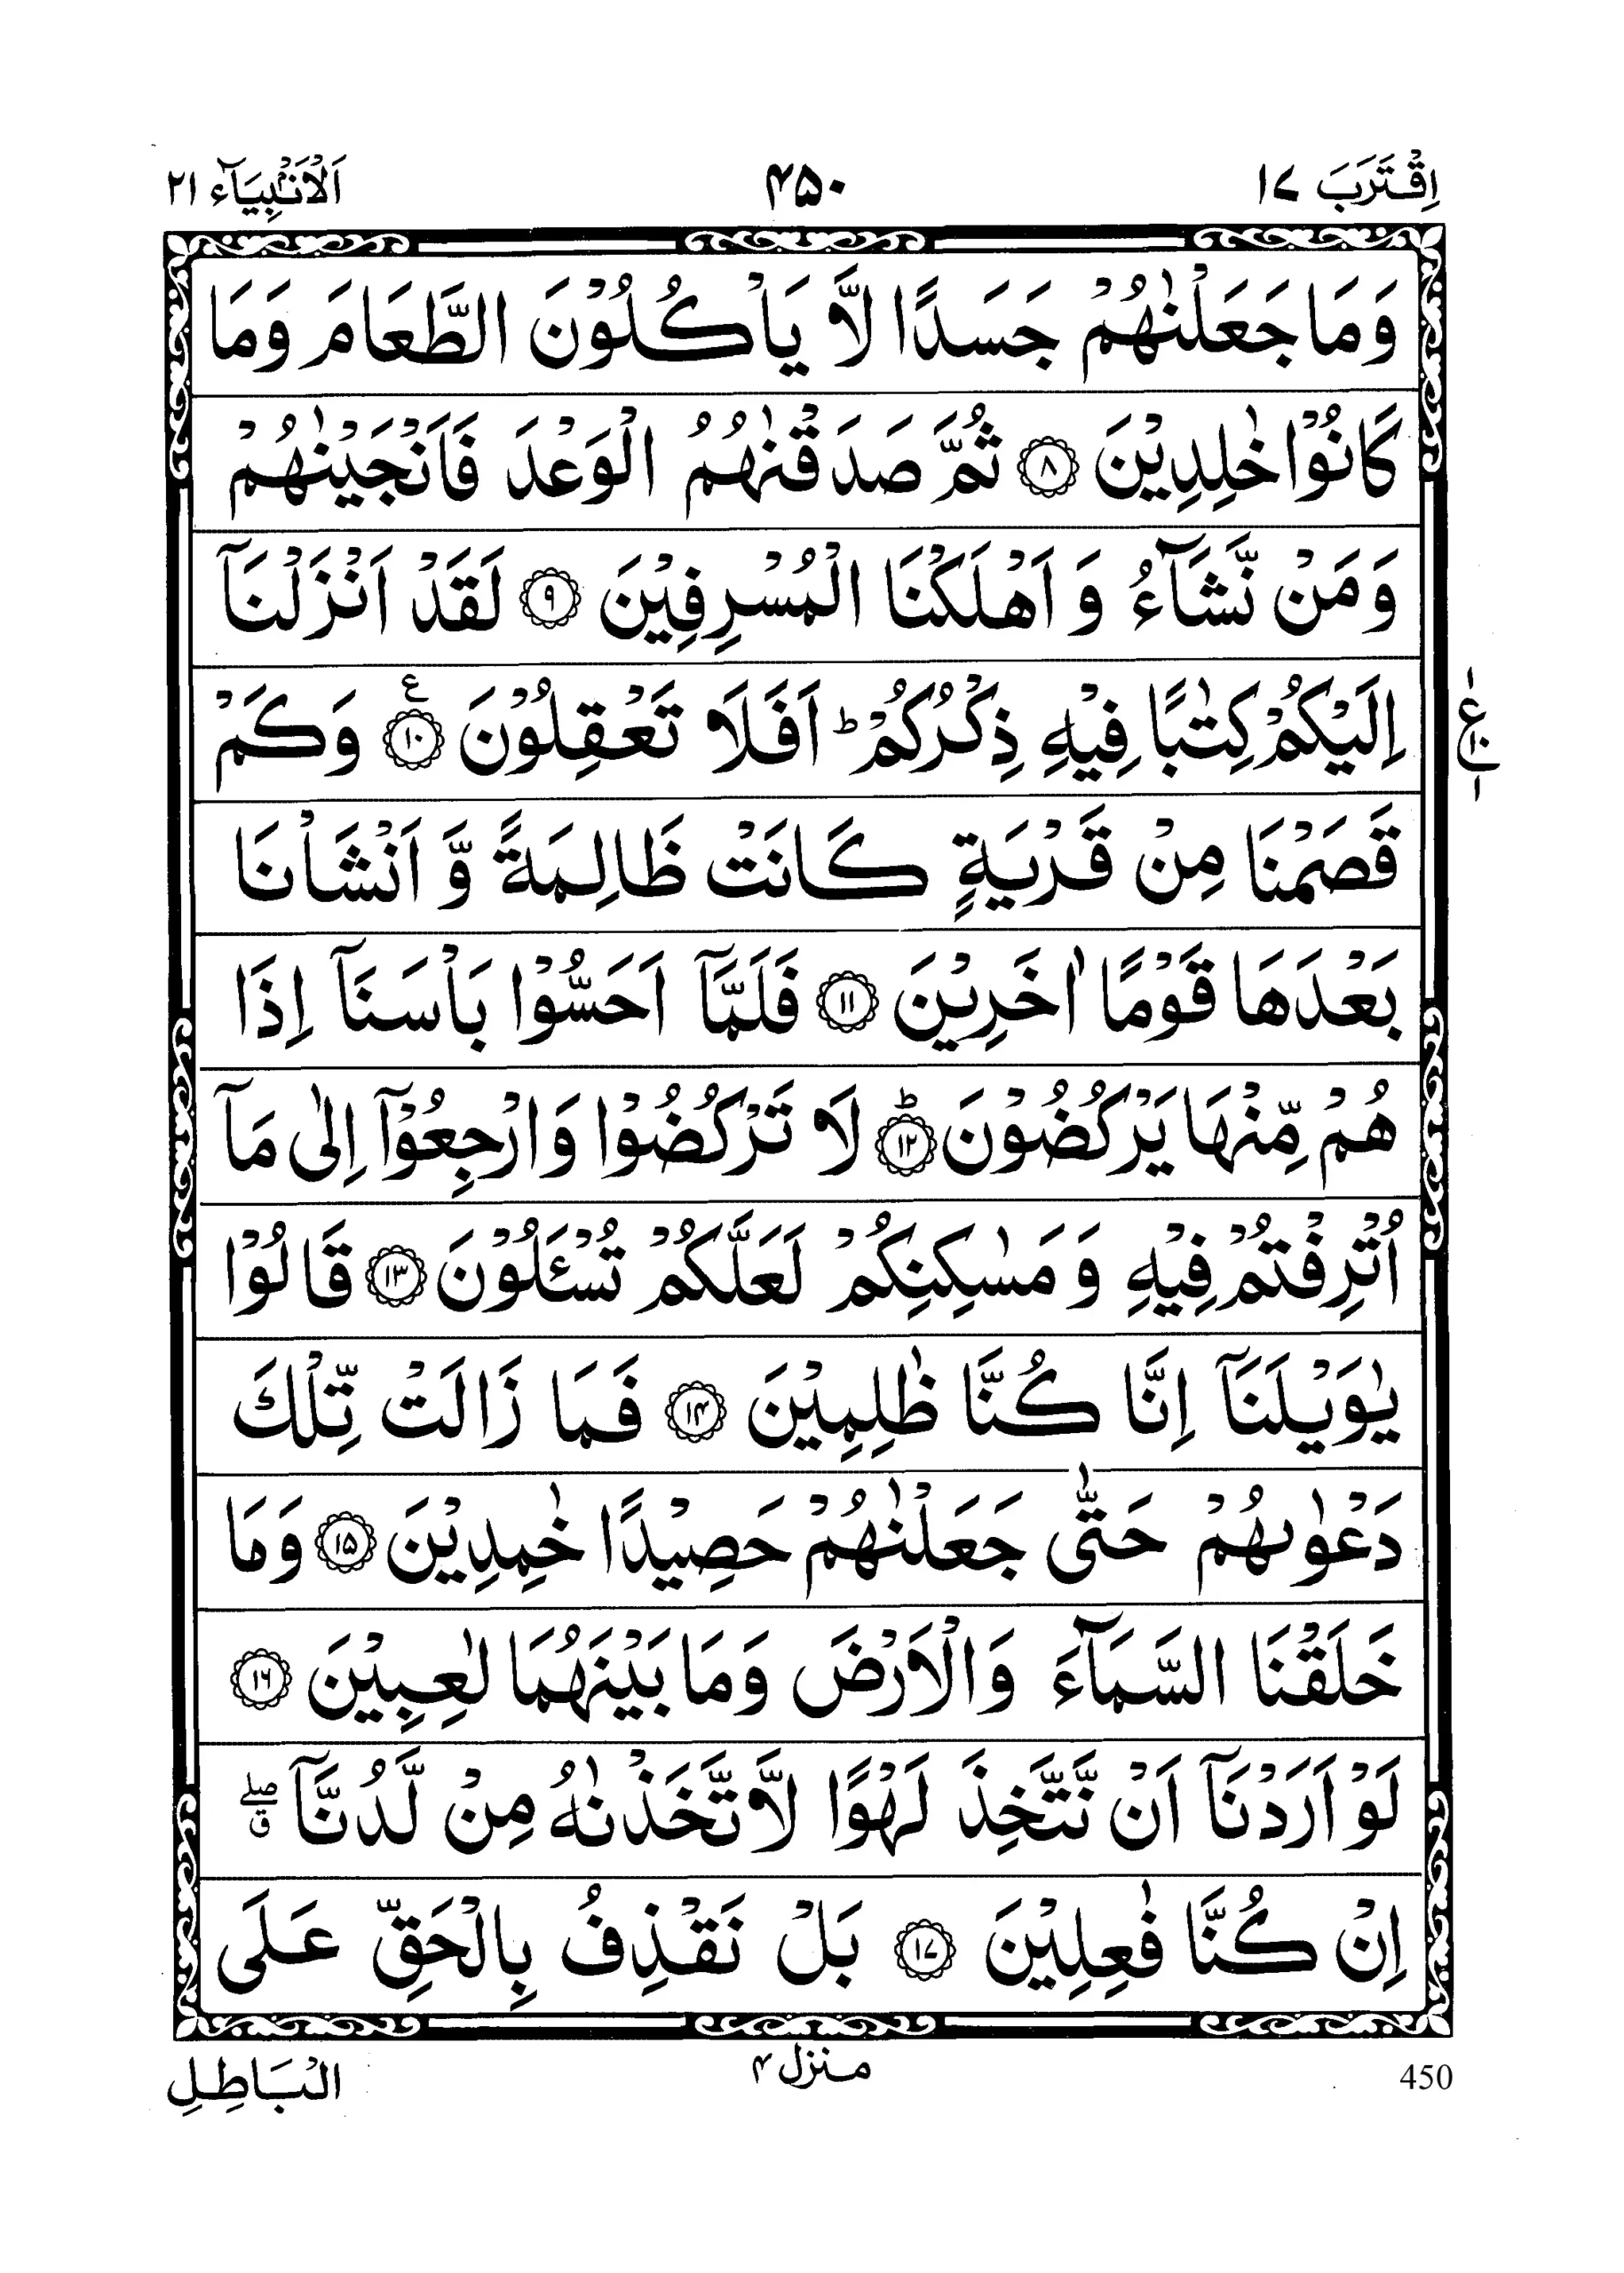 اِقْتَرَبَ ١٧
۴۵۰
اَلْاَنْۢبِيَآء ٢١
وَمَا جَعَلْنٰهُمْ جَسَدًا لَّا يَاْكُلُوْنَ الطَّعَامَ وَمَا
كَانُوْا خٰلِدِيْنَ ۸ ثُمَّ صَدَقْنٰهُمُ الْوَعْدَ فَاَنْجَيْنٰهُمْ
وَمَنْ نَّشَآءُ وَ اَهْلَكْنَا الْمُسْرِفِيْنَ ۹ لَقَدْ اَنْزَلْنَآ
اِلَيْكُمْ كِتٰبًا فِيْهِ ذِكْرُكُمْ ؕ اَفَلَا تَعْقِلُوْنَ ۱۰ ع وَكَمْ
ع ١ ١٠ ١
قَصَمْنَا مِنْ قَرْيَةٍ كَانَتْ ظَالِمَةً وَّ اَنْشَاْنَا
بَعْدَهَا قَوْمًا اٰخَرِيْنَ ۱۱ فَلَمَّآ اَحَسُّوْا بَاْسَنَآ اِذَا
هُمْ مِّنْهَا يَرْكُضُوْنَ ؕ ۱۲ لَا تَرْكُضُوْا وَارْجِعُوْٓا اِلٰى مَآ
اُتْرِفْتُمْ فِيْهِ وَ مَسٰكِنِكُمْ لَعَلَّكُمْ تُسْـَٔلُوْنَ ۱۳ قَالُوْا
يٰوَيْلَنَآ اِنَّا كُنَّا ظٰلِمِيْنَ ۱۴ فَمَا زَالَتْ تِّلْكَ
دَعْوٰىهُمْ حَتّٰى جَعَلْنٰهُمْ حَصِيْدًا خٰمِدِيْنَ ۱۵ وَمَا
خَلَقْنَا السَّمَآءَ وَالْاَرْضَ وَمَا بَيْنَهُمَا لٰعِبِيْنَ ۱۶
لَوْ اَرَدْنَآ اَنْ نَّتَّخِذَ لَهْوًا لَّاتَّخَذْنٰهُ مِنْ لَّدُنَّآ ۖق
اِنْ كُنَّا فٰعِلِيْنَ ۱۷ بَلْ نَقْذِفُ بِالْحَقِّ عَلَى
450
منزل ۴
الْبَاطِلِ